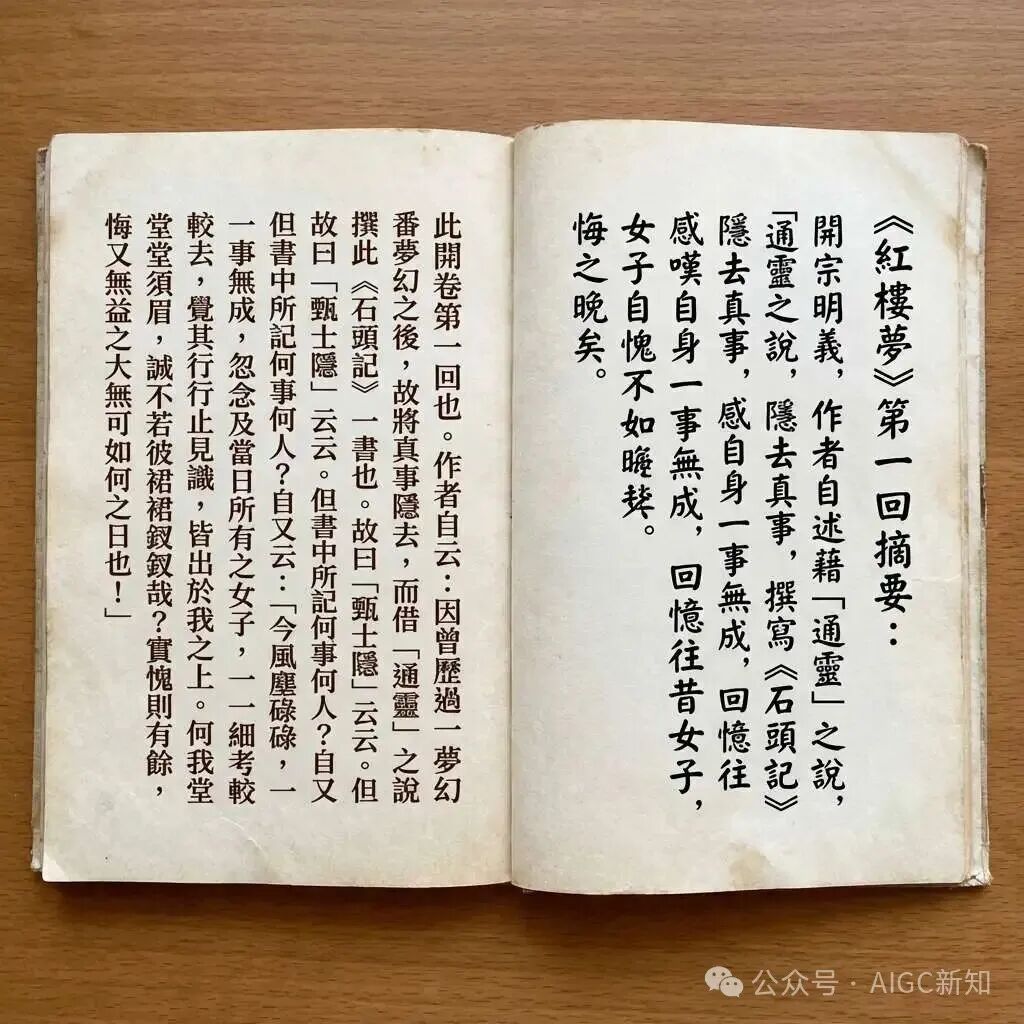 《紅樓夢》第一回摘要：
開宗明義，作者自述藉「通靈」之說，
「通靈之說，隱去真事，撰寫《石頭記》
隱去真事，感自身一事無成，回憶往
感嘆自身一事無成，回憶往昔女子，
女子自愧不如。
悔之晚矣。
此開卷第一回也。作者自云：因曾歷過一夢幻
番夢幻之後，故將真事隱去，而借「通靈」之說
撰此《石頭記》一書也。故曰「甄士隱」云云。但
故曰「甄士隱」云云。但書中所記何事何人？自又
但書中所記何事何人？自又云：「今風塵碌碌，一
一事無成，忽念及當日所有之女子，一一細考較
較去，覺其行行止見識，皆出於我之上。何我堂
堂堂須眉，誠不若彼裙裙釵釵哉？實愧則有餘，
悔又無益之大無可如何之日也！」
公众号·AIGC新知